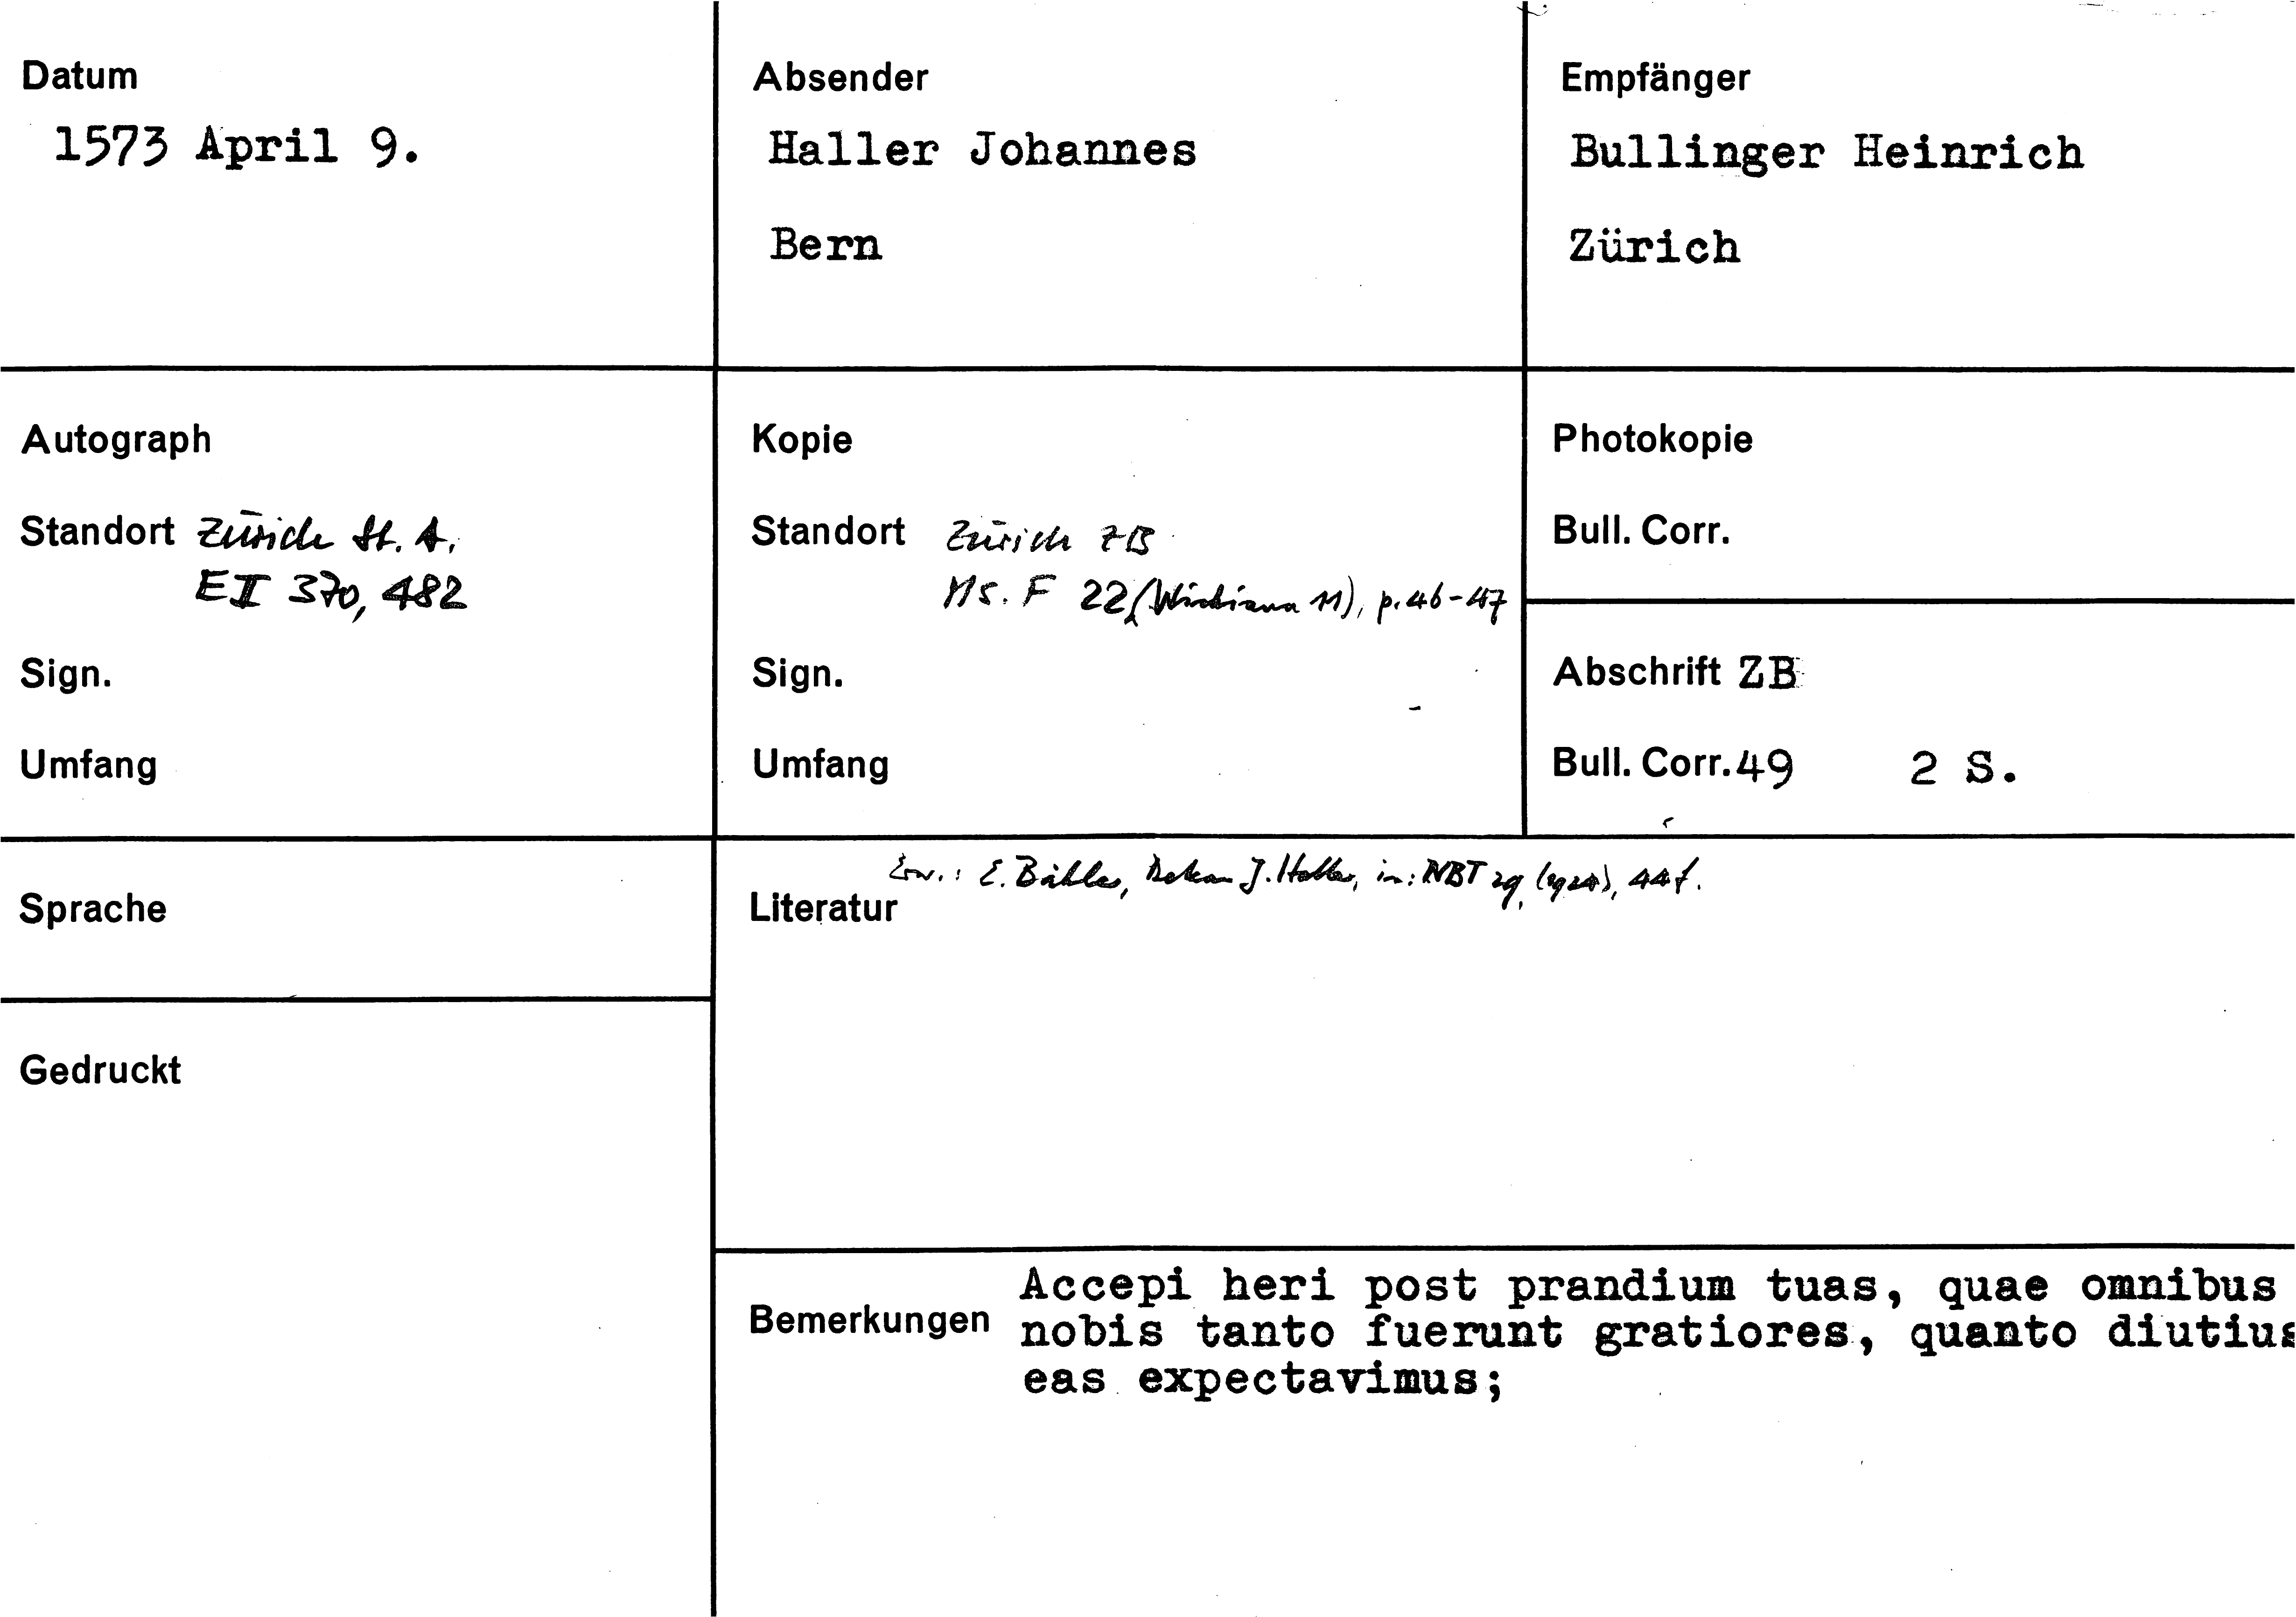 Datum
1573 April 9.
Absender
Haller Johannes
Bern
Empfänger
Bullinger Heinrich
Zürich
Autograph
Standort Zürich St. A.
E II 370, 482
Sign.
Umfang
Kopie
Standort Zürich ZB
Ms. F 22 (Wickiana 11), p. 46-47
Sign.
Umfang
Photokopie
Bull. Corr.
Abschrift ZB
Bull. Corr. 49 2 S.
Sprache
Gedruckt
Erw.: E. Bähler, Dekan J. Haller, in: NBT 29 (1924), 44 f.
Literatur
Bemerkungen
Accepi heri post prandium tuas, quae omnibus
nobis tanto fuerunt gratiores, quanto diutius
eas expectavimus;